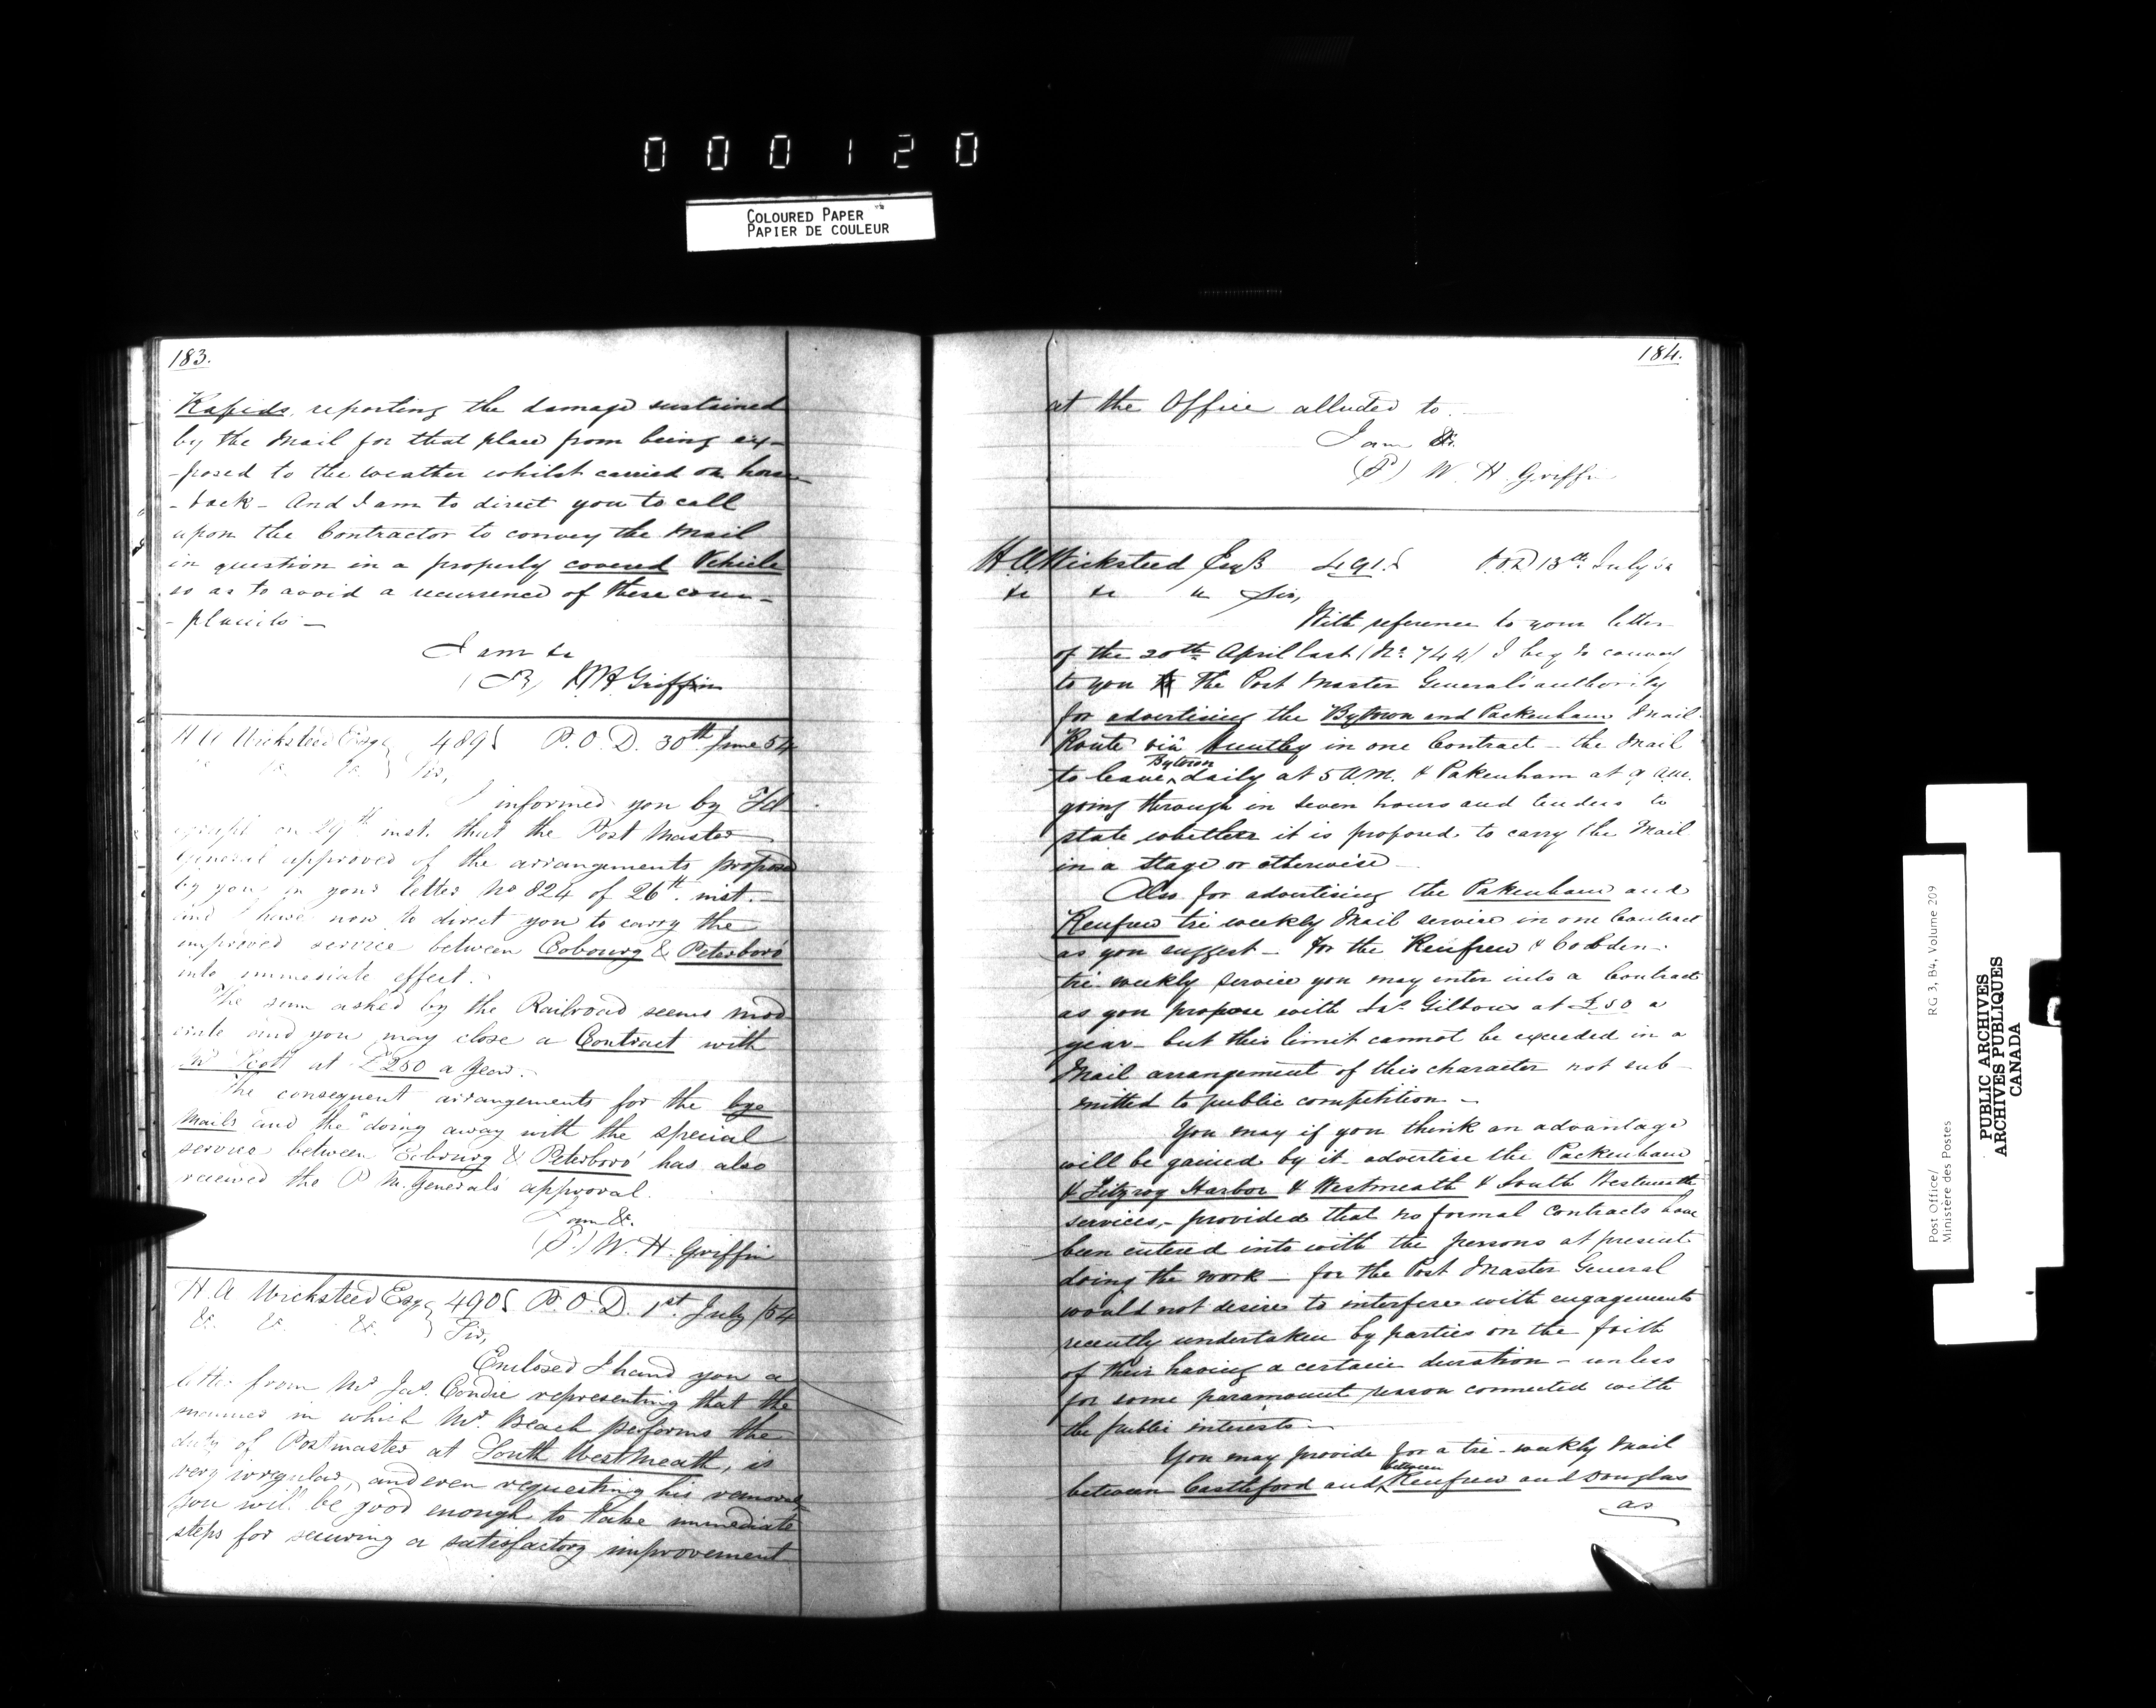 000120
COLOURED PAPER
PAPIER DE COULEUR
183.
Rapids, reporting the damage sustained
by the Mail for that place from being ex-
-posed to the weather whilst carried on horse
-back - And I am to direct you to call
upon the Contractor to convey the Mail
in question in a properly covered Vehicle
so as to avoid a recurrence of these com-
-plaints -
I am &c
W H Griffin
H A Wicksteed Esqe 489 P. O. D. 30th June 54
&c. &c. Sir,
I informed you by Tel
egraph on 29th inst. that the Post Master
General approved of the arrangements proposed
by you in your letter No 824 of 26th inst. -
and I have now to direct you to carry the
improved service between Cobourg & Peterboro'
into immediate effect.
The sum asked by the Railroad seems mod
erate and you may close a Contract with
Mr Scott at £250 a year.
The consequent arrangements for the bye
Mails and the doing away with the special
service between Cobourg & Peterboro' has also
received the P M. General's approval.
I am &c.
W. H. Griffin
H. A Wicksteed Esqe 490 P. O. D. 1st July /54
&c. &c. &c. Sir,
Enclosed I hand you a
letter from Mr Jas. Condie representing that the
manner in which Mr. Beach performs the
duty of Postmaster at South WestMeath, is
very irregular, and even requesting his removal
you will be good enough to take immediate
steps for securing a satisfactory improvement
184.
at the Office alluded to.
I am &c.
W. H. Griffin
H. A. Wicksteed Esqe 491 P.O.D 13th July 54
&c &c &c Sir,
With reference to your letter
of the 20th April last (No. 744) I beg to convey
to you The Post Master General's authority
for advertising the Bytown and Packenham Mail
Route via Huntley in one Contract - the Mail
to leave Bytown daily at 5 A.M. & Pakenham at 9 a.m.
going through in seven hours and tenders to
state whether it is proposed to carry the Mail
in a stage or otherwise
Also for advertising the Pakenham and
Renfrew tri weekly Mail service in one Contract
as you suggest - for the Renfrew & Cobden
tri weekly service you may enter into a Contract
as you propose with Jas. at £50 a
year - but this limit cannot be exceeded in a
Mail arrangement of this character not sub-
-mitted to public competition -
You may if you think an advantage
will be gained by it - advertise the Packenham
& Fitzroy Harbor & Westmeath & South Westmeath
services, - provided that no formal contracts have
been entered into with the persons at present
doing the work - for the Post Master General
would not desire to interfere with engagements
recently undertaken by parties on the faith
of their having a certain duration - unless
for some paramount reason connected with
the public interests -
You may provide for a tri-weekly Mail
between Castleford and between Renfrew and Douglas
as
Post Office/
Ministère des Postes
RG 3, B4, Volume 209
PUBLIC ARCHIVES
ARCHIVES PUBLIQUES
CANADA